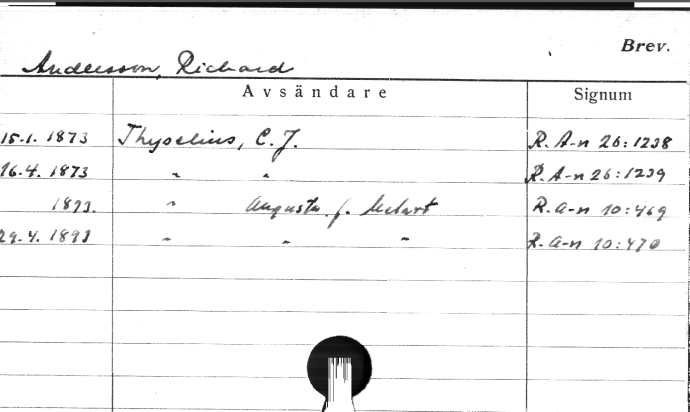 Brev.
Andersson, Richard
Avsändare Signum
15.1. 1873 Thyselius, C. J. R. A-n 26:1238
16.4. 1873 " " R. A-n 26:1239
1893. " Augusta f. R. a-n 10:469
29.4. 1893 " " " R. a-n 10:470